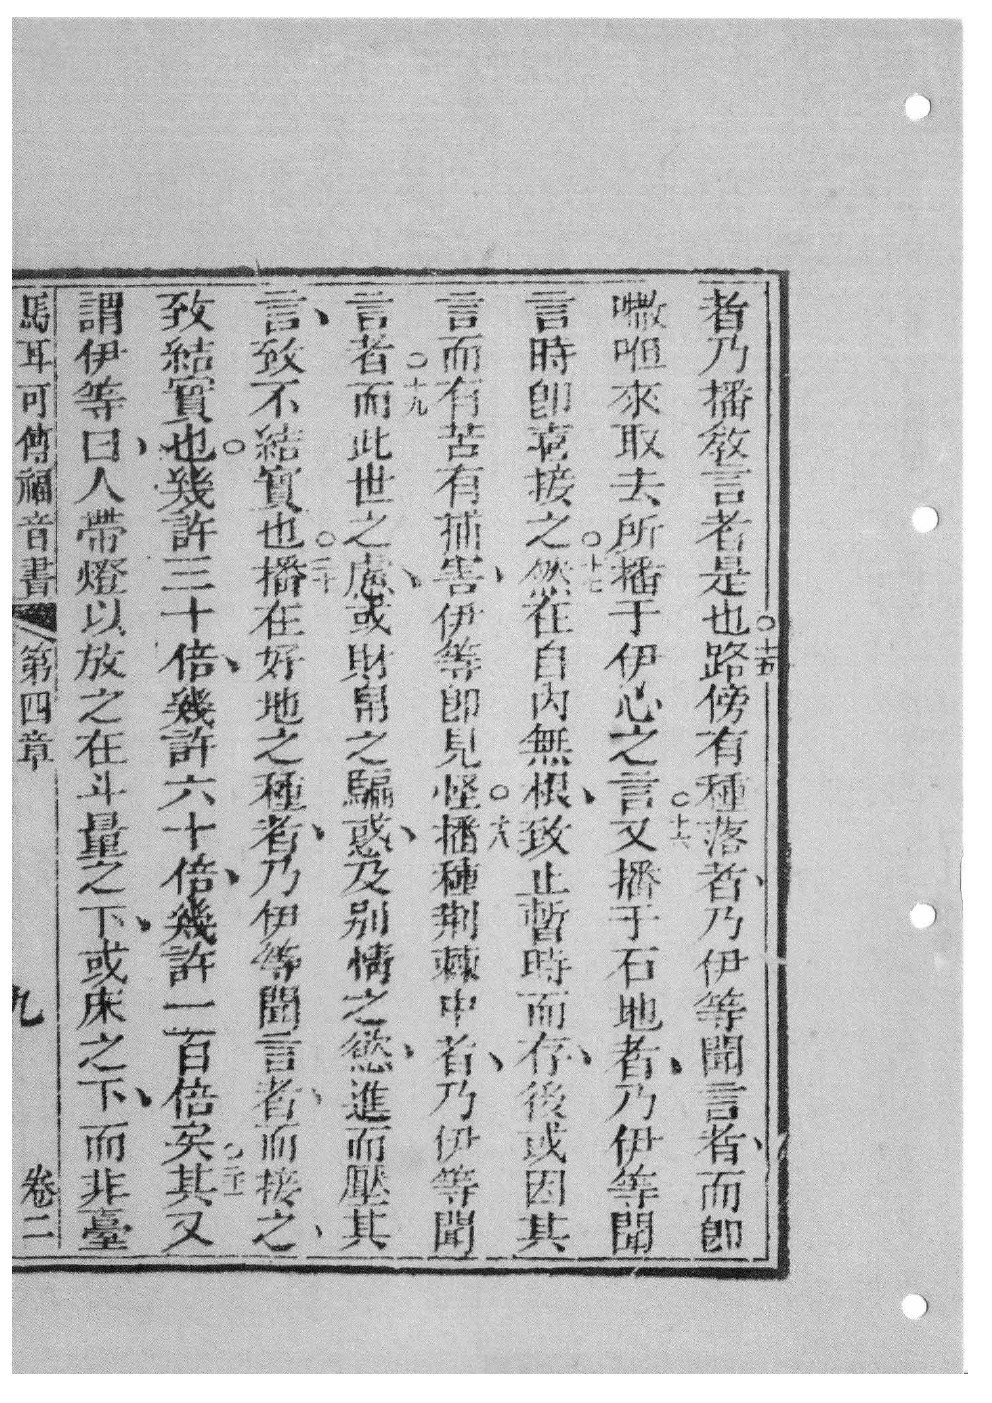 者乃播教言者是也○十五路傍有種落者、乃伊等聞言者、而即
㘔呾來取去所播于伊心之言○十六又播于石地者、乃伊等聞
言時即喜接之○十七然在自內無根、致止暫時而存、後或因其
言而有苦有捕害、伊等即見怪○十八播種荊棘中者、乃伊等聞
言者○十九而此世之慮、或財帛之騙惑、及別情之慾、進而壓其
言、致不結實也○二十播在好地之種者、乃伊等聞言者、而接之、
致結實也○幾許三十倍、幾許六十倍、幾許一百倍矣○二十一其又
謂伊等曰、人帶燈以放之在斗量之下、或床之下、而非臺
馬耳可傳福音書 第四章 九 卷二